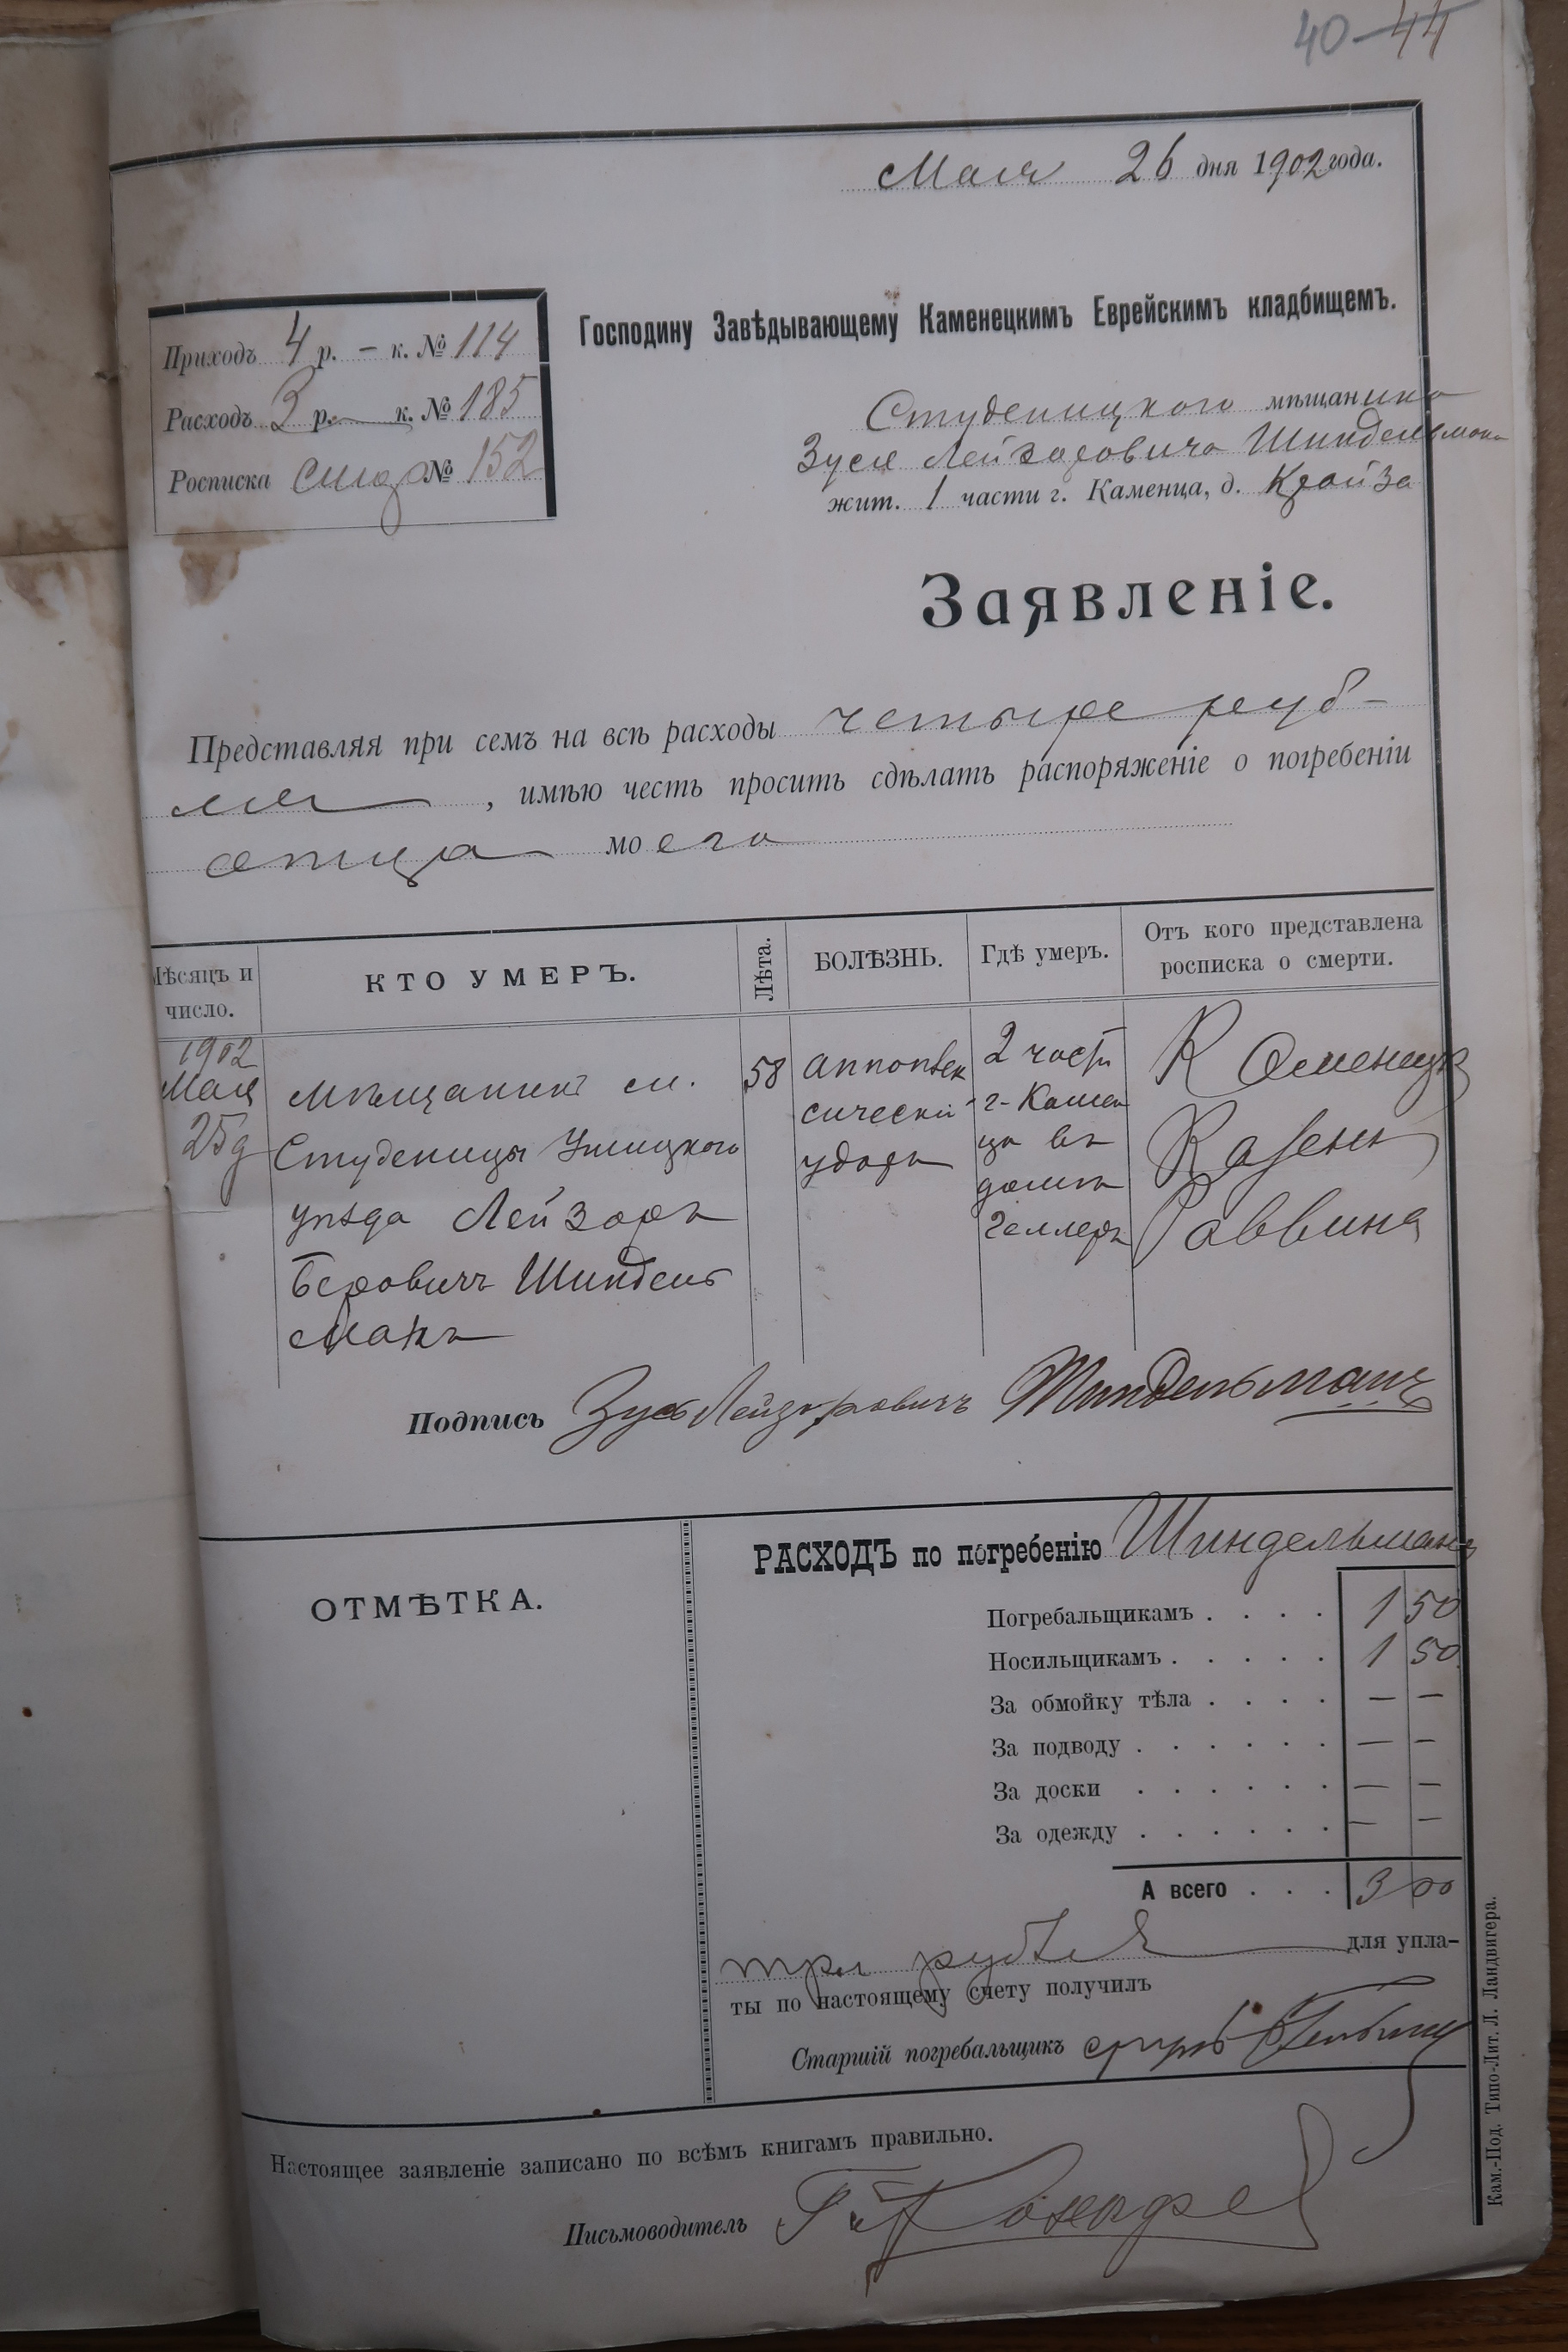 40-44
Мая 26 дня 1902 года.
Приходъ 4 р. – к. № 114
Расходъ 3 р. — к. № 185
Росписка № 152
Господину Завѣдывающему Каменецкимъ Еврейскимъ кладбищемъ.
Студеницкого мѣщанина
Зуся Лейзоровича Шиндельмана
жит. 1 части г. Каменца, д. Крайза
Заявленіе.
Представляя при семъ на всѣ расходы четыре руб-
ля, имѣю честь просить сдѣлать распоряженіе о погребеніи
отца моего
Мѣсяцъ и число.
КТО УМЕРЪ.
Лѣта.
БОЛѢЗНЬ.
Гдѣ умеръ.
Отъ кого представлена росписка о смерти.
1902
Мая
25 д
Мѣщанинъ м.
Студеницы Ушицкого
уѣзда Лейзоръ
Беровичъ Шиндель
манъ
58
аппоплек
сический
ударъ
2 части
г. Камен
ца въ
домѣ
Геллера
Каменецк
Казен
Раввина
Подпись Зусь Лейзоровичъ Шиндельманъ
ОТМѢТКА.
РАСХОДЪ по погребенію Шиндельмана
Погребальщикамъ . . . . 1 50
Носильщикамъ . . . . . 1 50
За обмойку тѣла . . . . — —
За подводу . . . . . . — —
За доски . . . . . . — —
За одежду . . . . . . — —
А всего . . . 3 00
три рубля для упла-
ты по настоящему счету получилъ
Старшій погребальщикъ
Настоящее заявленіе записано по всѣмъ книгамъ правильно.
Письмоводитель
Кам.-Под. Типо-Лит. Л. Ландвигера.